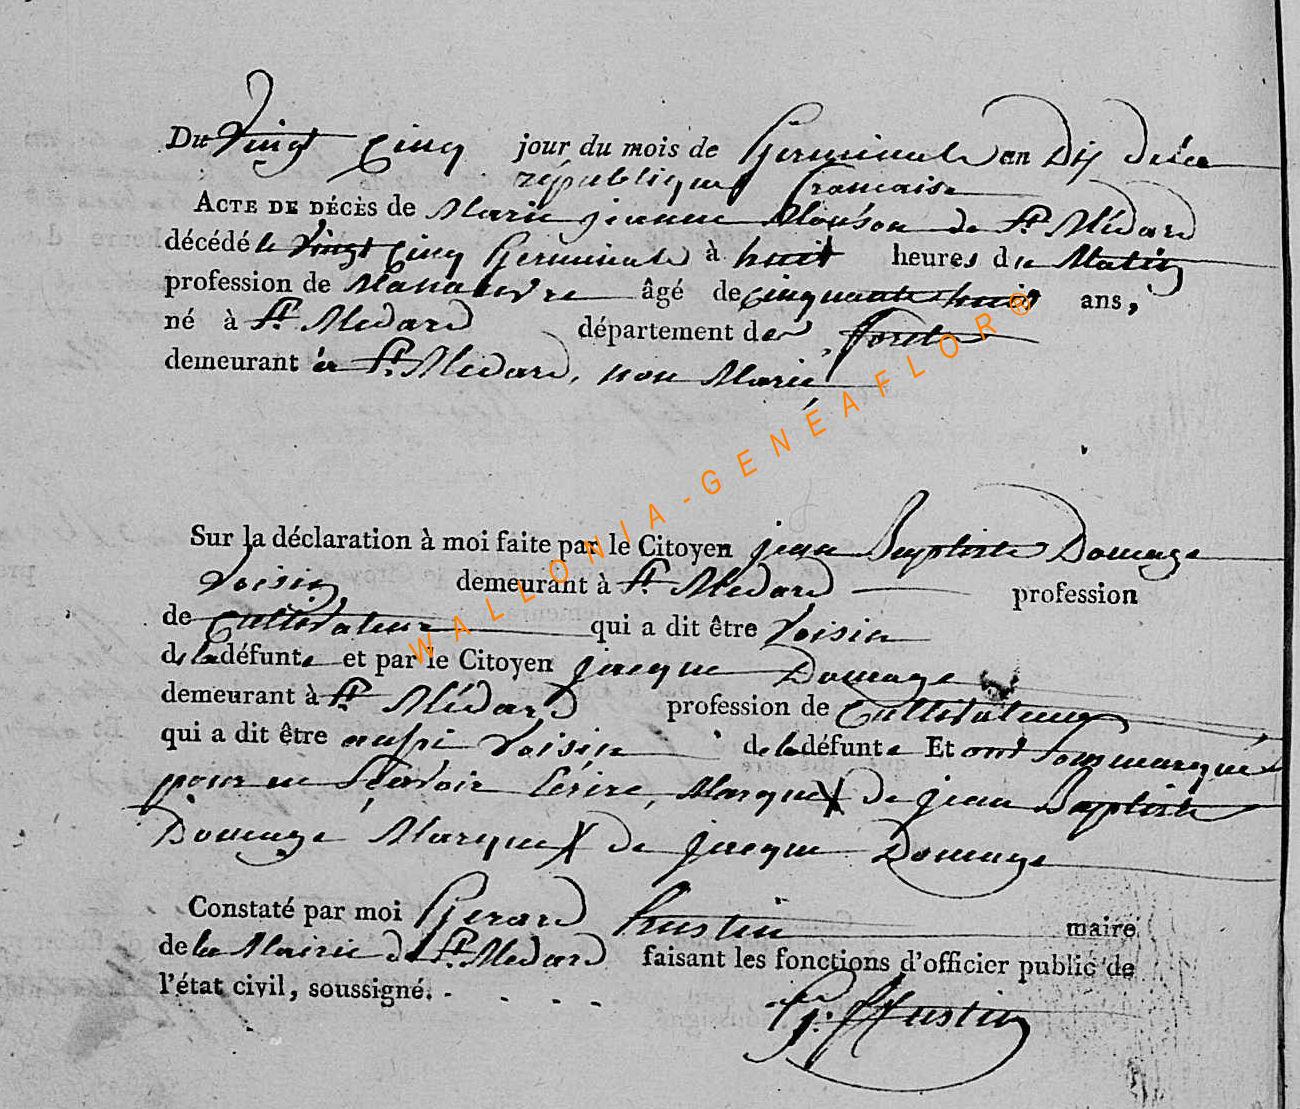 Du Vingt Cinq jour du mois de Germinale an Dix de la
république francaise
ACTE DE DÉCÈS de Marie jeanne Mouson de St. Médard
décédé le Vingt Cinq Germinale à huit heures du Matin
profession de Manauvre âgé de Cinquante huit ans,
né à St. Medard département des forets
demeurant à St. Medard, non Marié
Sur la déclaration à moi faite par le Citoyen jean Baptiste Domage
Voisin demeurant à St. Medard profession
de Cultivateur qui a dit être Voisin
de la défunte et par le Citoyen jacque Domage
demeurant à St. Médard profession de Cultivateur
qui a dit être aussi Voisin de la défunte Et ont Sousmarqué
pour ne Scavoir Ecrire, Marque X de jean Baptiste
Domage Marque X de jacque Domage
Constaté par moi Gerard hustin maire
de la Mairie de St. Medard faisant les fonctions d'officier public de
l'état civil, soussigné.
G: Hustin
WALLONIA-GENEAFLOR®